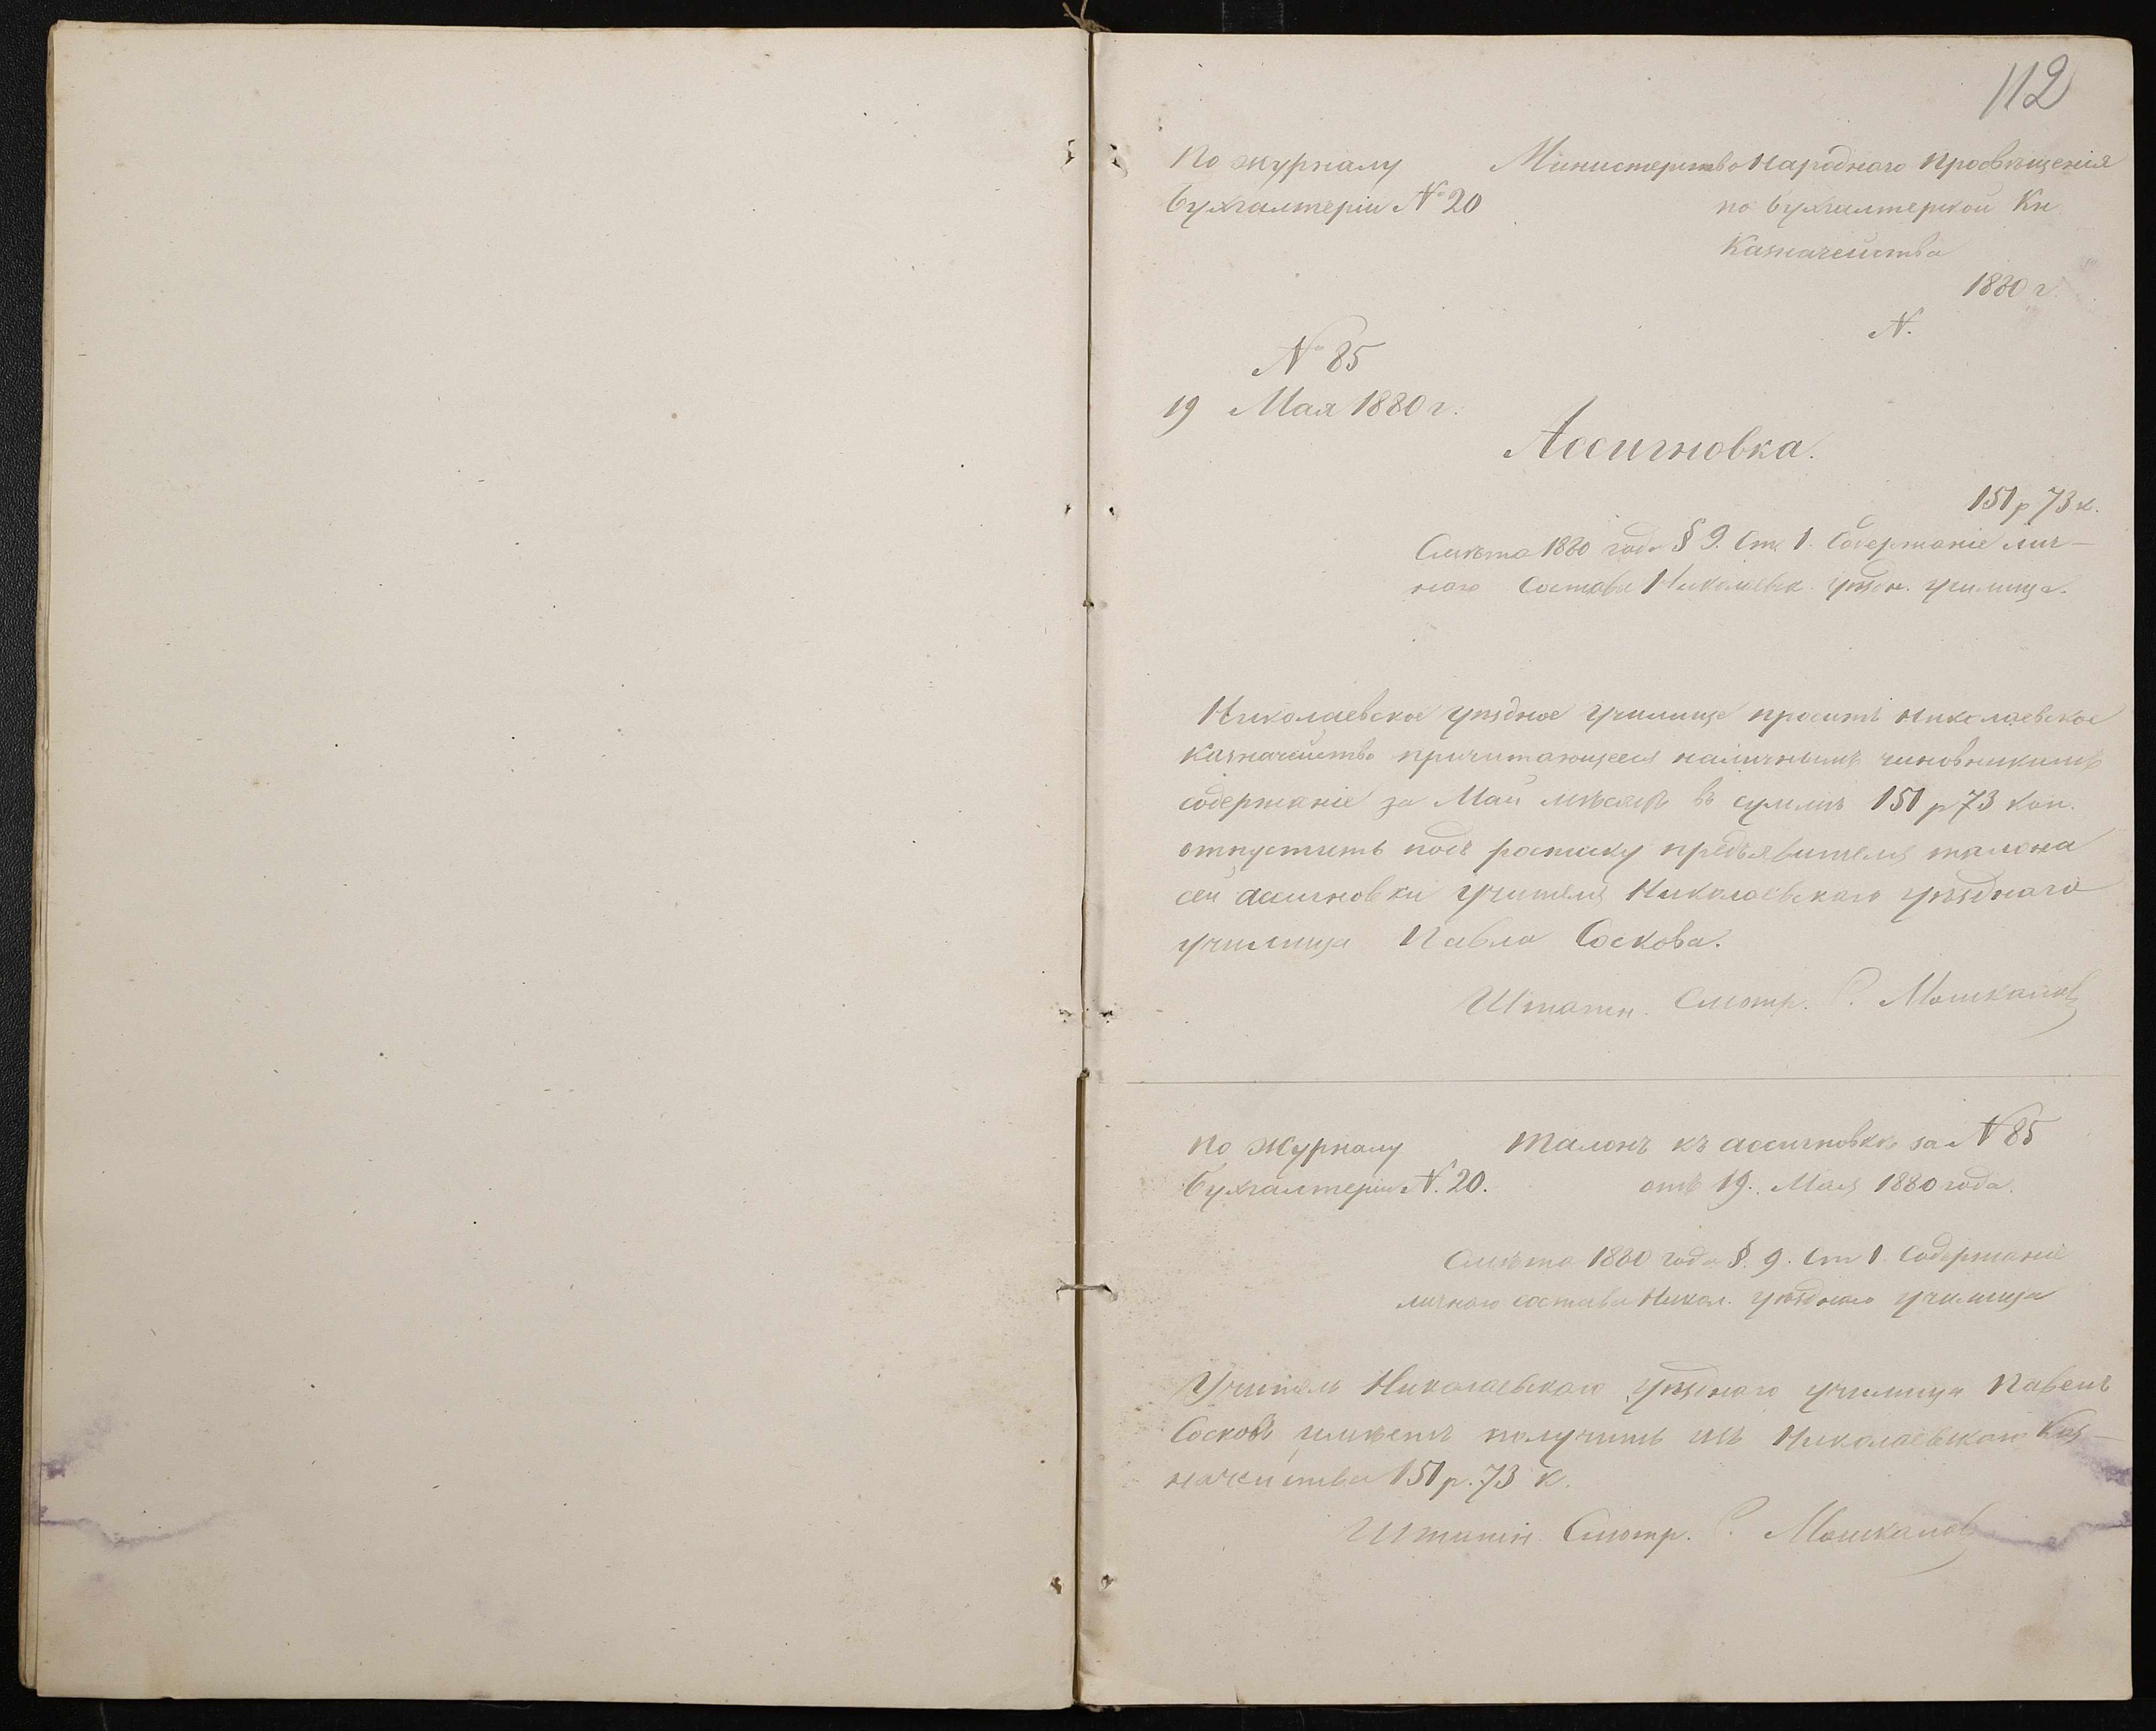 112
По журналу
Бухгалтеріи № 20
Министерство Народнаго Просвѣщенія
по бухгалтерской Кн
Казначейства
1880 г.
N.
№ 85
19 Мая 1880 г.
Ассигновка.
151 р 73 к.
Смѣта 1880 года § 9. Ст. 1. Содержаніе лич-
наго Состава Николаевск. уѣздн. училища.
Николаевское уѣздное Училище проситъ Николаевское
Казначейство причитающееся наличнымъ чиновникамъ
содержаніе за Май мѣсяцъ въ суммѣ 151 р 73 коп.
отпустить подъ росписку предъявителя талона
сей ассигновки Учителя Николаевскаго уѣзднаго
училища Павла Соскова.
Штатн. Смотр. С. Мошкаловъ
По Журналу
Бухгалтеріи N. 20.
Талонъ къ ассигновкѣ за N 85
отъ 19. Мая 1880 года.
Смѣта 1880 года §. 9. Ст 1. Содержаніе
личнаго состава Никол. уѣзднаго училища
Учитель Николаевскаго Уѣзднаго училища Павелъ
Сосковъ имѣетъ получить изъ Николаевскаго Каз-
начейства 151 р. 73 к.
Штатн. Смотр. С. Мошкаловъ